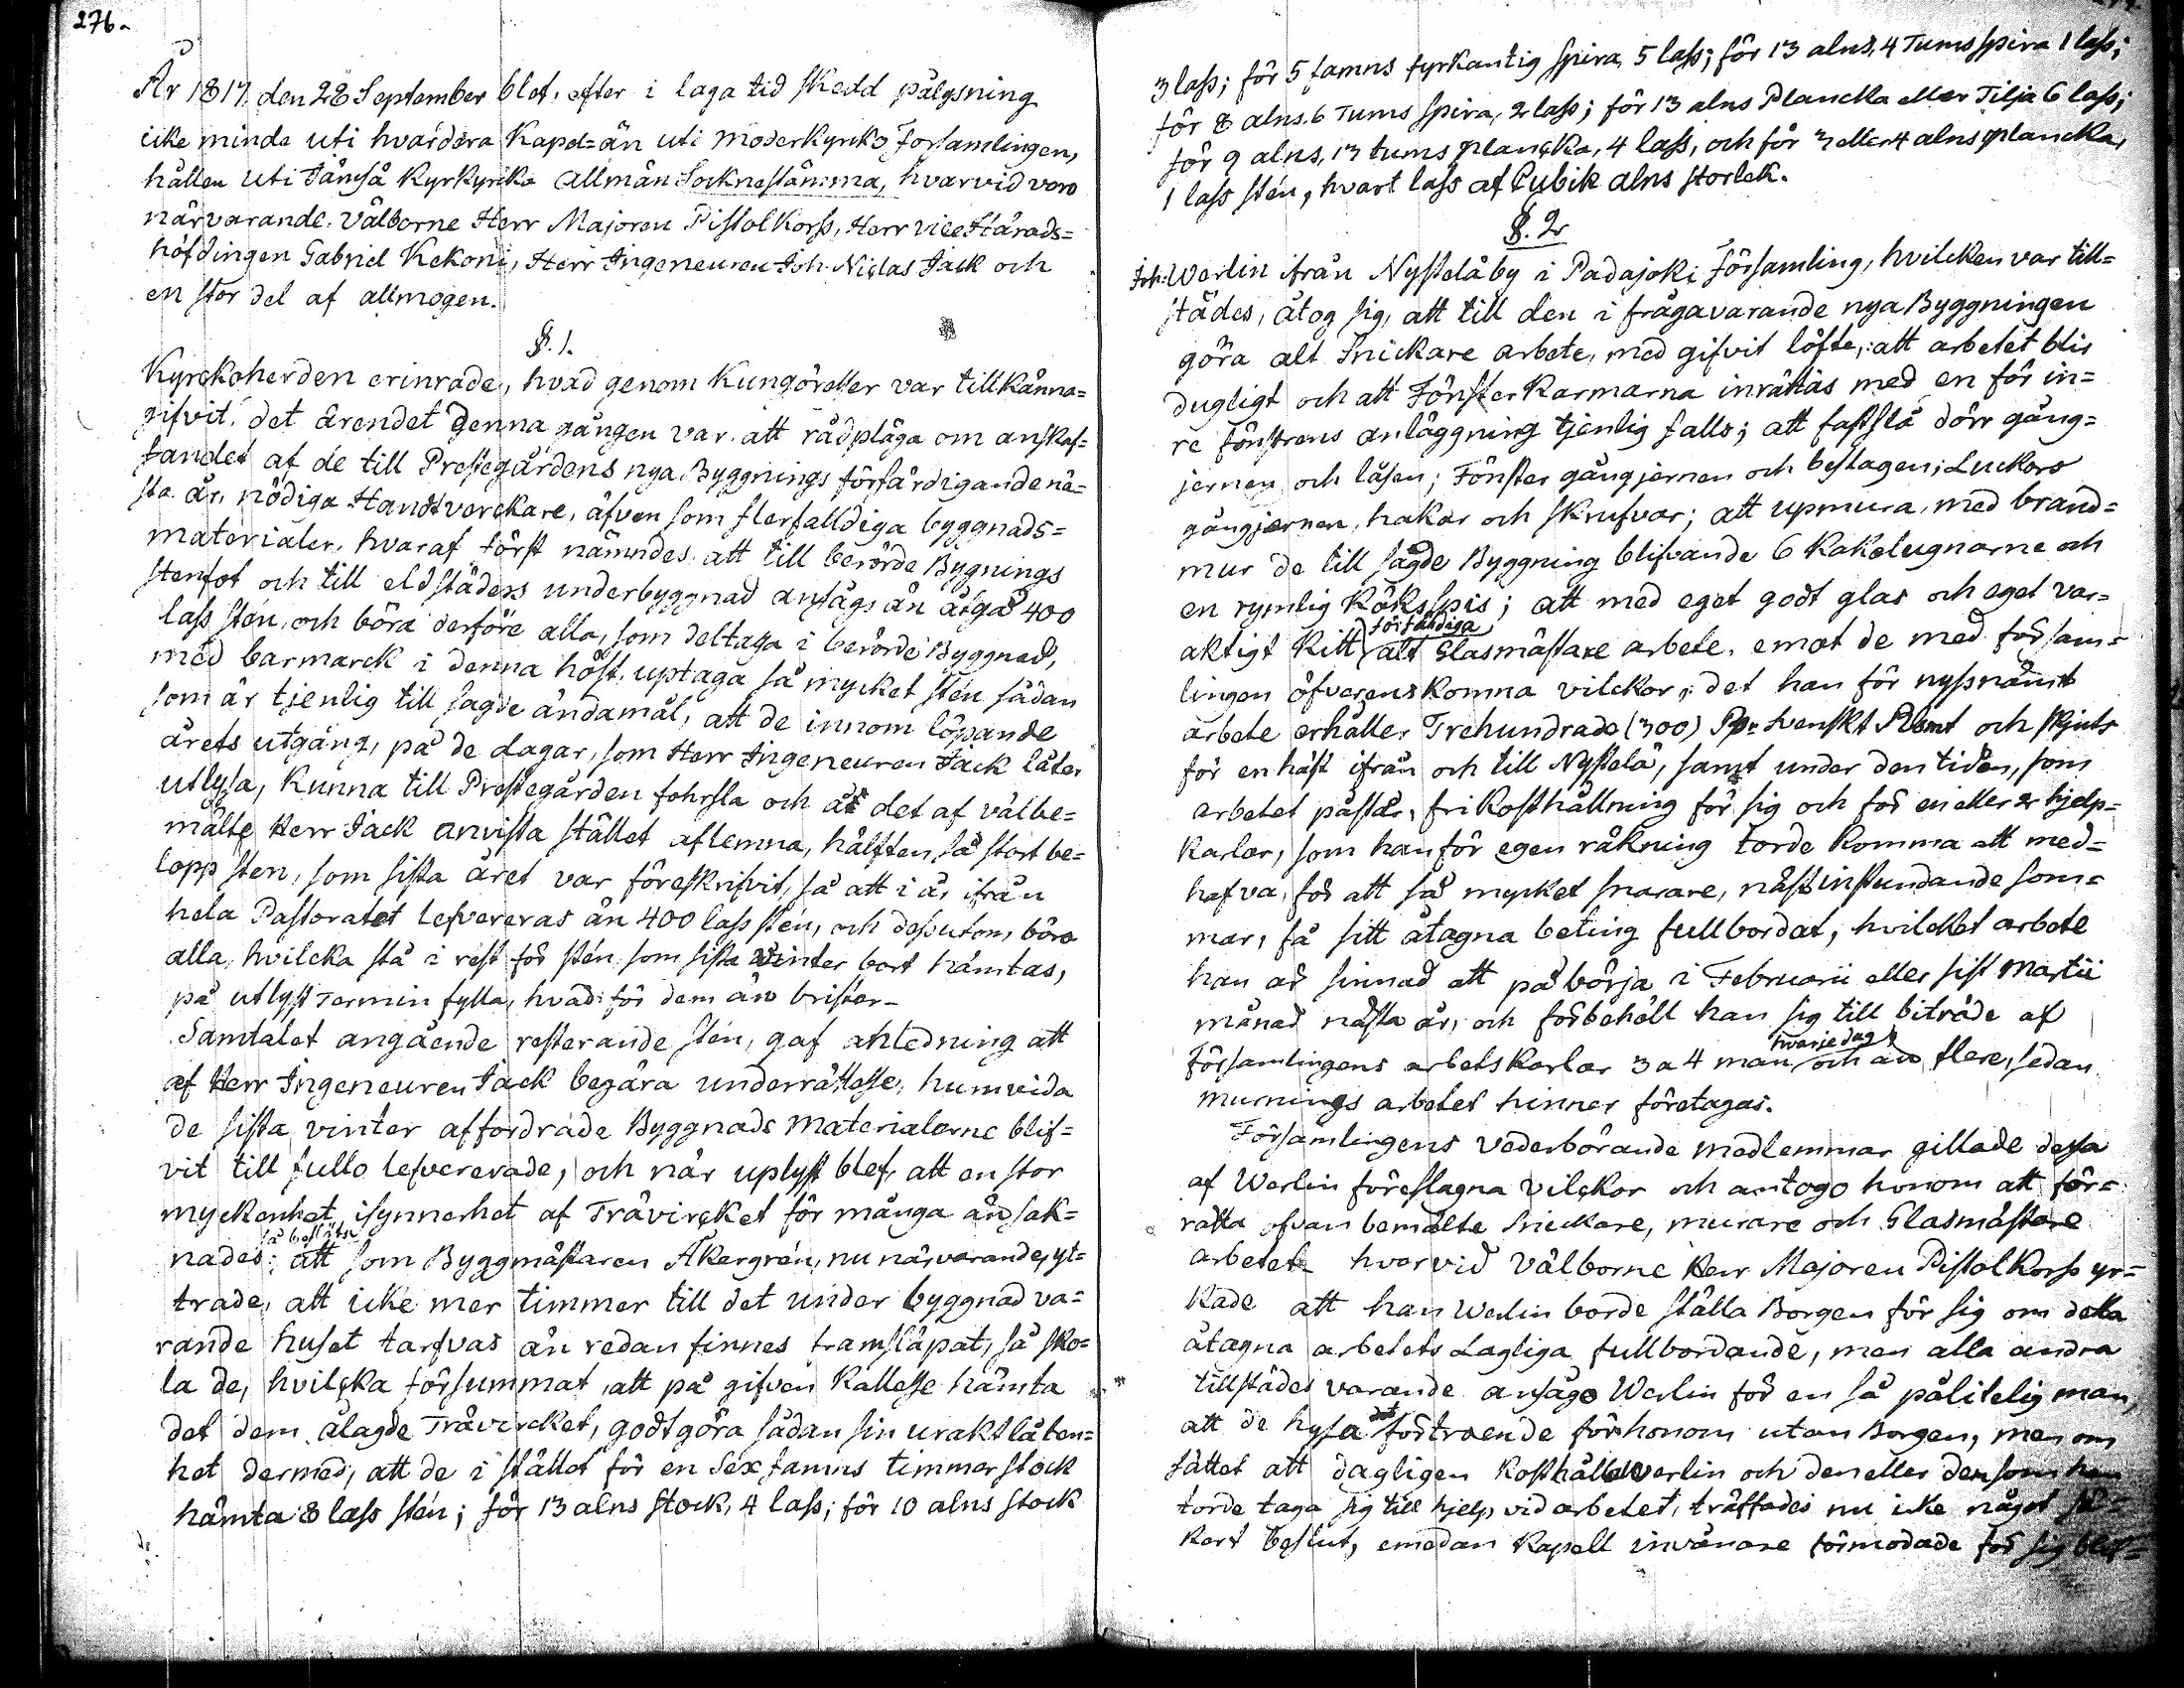 276.
År 1817 den 28 September blef, efter i laga tid skedd pålysning
icke minde uti hvardera Kapel= än uti moderkyrko Församlingen,
hållen uti Jämsä Kyrkyrka allmän Sockne stämma, hvarvid voro
närvarande. välborne Herr Majoren Pistolkorss, Herr vice Härads=
höfdingen Gabriel Kekoni, Herr Ingeneuren Joh. Niclas Jack och
en stor del af allmogen.
§. 1.
Kyrckoherden erinrade, hvad genom Kungörelser var tillkänna=
gifvit, det ärendet denna gången var att rådpläga om anskaf=
fandet af de till Prestegårdens nya Byggnings förfärdigande nä=
sta år, nödiga Handtverckare, äfven som flerfalldiga byggnads=
materialer, hvaraf först nämndes att till berörde Bygnings
stenfot och till eldstäders underbyggnad ansågs än åtgå 400
lass sten, och böra derföre alla, som deltaga i berörde Byggnad,
med barmarck i denna höst, uptaga så mycket sten sådan
som är tjenlig till sagde ändamål, att de innom löpande
årets utgång, på de dagar, som Herr Ingeneuren Jack låter
utlysa, kunna till Prestegården fohrsla och å det af välbe=
mälte Herr Jack anvista stället aflemna, hälften så stort be=
lopp sten, som sista året var föreskrifvit, så att i år ifrån
hela Pastoratet lefvereras än 400 lass sten, och dessutom, böra
alla, hvilcka stå i rest för sten som sista vinter bort hämtas,
på utlyst Termin fylla, hvad för dem än brister_
Samtalet angående resterande sten, gaf anledning att
af Herr Ingeneuren Jack begära underrättelse, humvida
de sista vinter affordrade Byggnads materialerne blif=
vit till fullo lefvererade, och när uplyst blef, att en stor
myckenhet isynnerhet af Trävircket för många än sak=
så beslöts
nades; att som Byggmästaren Åkergren, nu närvarande, yt=
trade, att icke mer timmer till det under byggnad va=
rande huset tarfvas än redan finnes framsläpat, så sko=
la de, hvilcka försummat, att på gifven Kallelse hämta
det dem ålagde Trävircket, godtgöra sådan sin uraktlåten=
het dermed, att de i stället för en Sex famns timmerstock
hämta 8 lass sten; för 13 alns stock, 4 lass; för 10 alns stock
3 lass; för 5 famns fyrkantig spira, 5 lass; för 13 alns, 4 Tums spira 1 lass;
för 8 alns. 6 Tums spira, 2 lass; för 13 alns Plancka eller Tilja 6 lass;
för 9 alns, 13 tums plancka, 4 lass, och för 3 eller 4 alns plancka,
1 lass sten, hvart lass af Cubik alns storlek.
§. 2
Joh: Werlin ifrån Nystelä by i Padajoki Församling, hvilcken var till=
städes, åtog sig, att till den i frågavarande nya Byggningen
göra alt Snickare arbete, med gifvit löfte, att arbetet blir
dugligt och att Fönster Karmarna inrättas med en för in=
re fönstrens anläggning tjenlig falls; att fastslå dörr gång=
jernen och låsen; Fönster gångjernen och beslagen; Luckors
gångjernen, hakar och skrufvar; att upmura, med brand=
mur de till sagde Byggning blifvande 6 Kakelugnarne och
en rymlig Köksspis; att med eget godt glas och eget var=
förfärdiga
aktigt Kitt alt Glasmästare arbete, emot de med försam=
lingen öfverenskomna vilckor; det han för nyssnämt
arbete erhåller Trehundrade (300) svenskt och skjuts
för en häst ifrån och till Nystelä, samt under den tiden, som
arbetet påstår, fri Kosthållning för sig och för en eller 2 hjelp=
karlar, som han för egen räkning torde komma att med=
hafva, för att så mycket snarare, näst instundande som=
mar, få sitt åtagna beting fullbordat, hvilcket arbete
han är sinnad att påbörja i Februarii eller sist Martii
månad nästa år, och förbehölt han sig till biträde af
hvarje dag
församlingens arbetskarlar 3 a 4 man och än flere, sedan
murnings arbetet hinner företagas.
Församlingens vederbörande medlemmar gillade dessa
af Werlin föreslagna vilckor och antogo honom att för=
rätta ofvan bemälte Snickare, murare och Glasmästare
arbetet_ hvarvid välborne Herr Majoren Pistolkorss yr=
kade att han Werlin borde ställa Borgen för sig om detta
åtagna arbetets Lagliga fullbordande, men alla andra
tillstädes varande ansågo Werlin för en så pålitelig man,
det
att de hysa förtroende för honom utan Borgen, men om
sättet att dagligen Kosthålla Werlin och den eller dem som han
torde taga sig till hjelp vid arbetet, träffades nu icke något sä=
kert beslut, emedan Kapell invånare förmodade för sig blif=